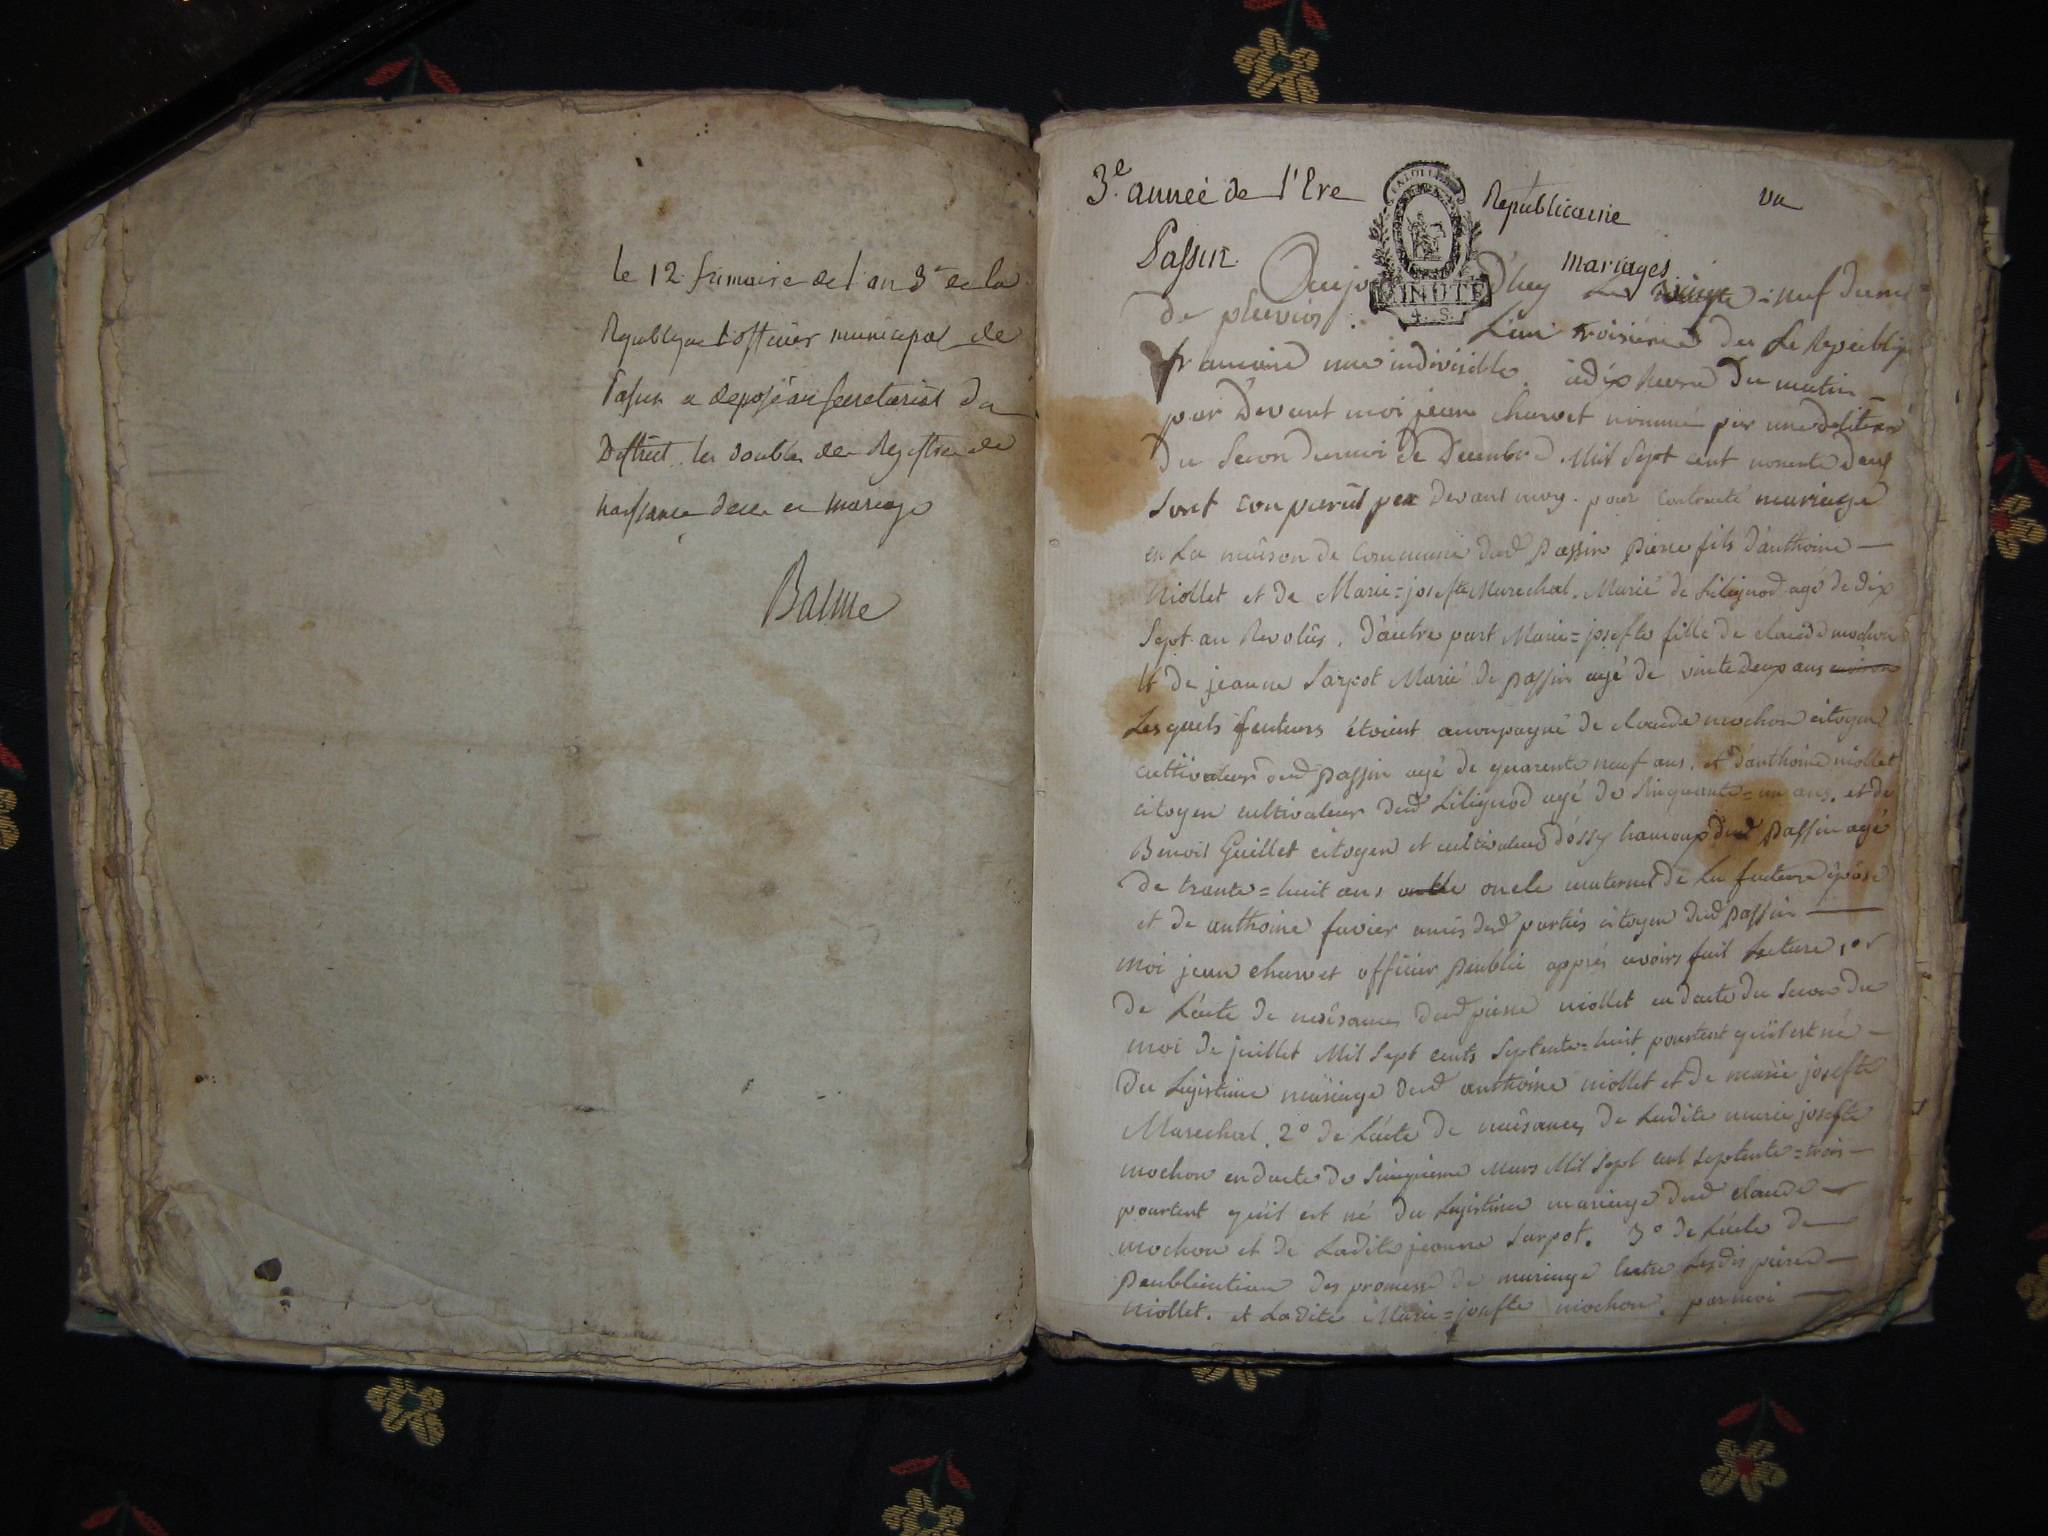 le 12 frimaire de l'an 3e de la
Republique l'officier municipal de
Passin a deposé au secretariat du
District les doubles des Registres de
naissance deces et mariage
Balme
3e. anneé de l'Ere Républicaine vu
Passin. mariages
Aujo d'huy Le vingt=neuf du moi
de pluvios L'an troisieme de La Republiq
francaise une indivisible. à dix heure du matin
par Devant moi jean charvet nommé par une
du Secon du moi de Decembre Mil Sept cent nonente deux
sont conparut par devant moy. pour contracté mariage
en La maison de Commune dud passin piere fils d'anthoine
niollet et de Marie=josefte Marechal. Marié de Lilignod agé de dix
Sept an Revolûs. d'autre part Marie=josefte fille de claude mochon
Et de jeanne Sarpot Marié de passin agé de vinte deux ans environ
Lesquels feuteurs étoient acompagné de claude mochon citoyen
cultivateur dud passin agé de quarente neuf ans. et d'anthoine niollet
citoyen cultivateur dud Lilignod agé de Sinquante=un ans. et de
Benoit Guillet citoyen et cultivateur d'ossy hamoux dud passin agé
de trante=huit ans oncle maternel de La futeure épôse
et de anthoine favier amis desd partiés citoyen dud passin
moi jean charvet officier peublic apprés avoirs fait Lecture, 1º
de L'acte de naisances dud piere niollet en datte du Secon du
moi de juillet Mil Sept cents Septente=huit pourtent qu'il est né
Du Legistime mariage dud anthoine niollet et de marie josefte
Marechal. 2º de L'acte de naisances de Ladite marie josefte
mochon en datte du Sinquieme Mars Mil Sept cent Septente=trois
pourtent qu'il est né du Legistime mariage dud claude
mochon et de Ladite jeanne Sarpot. 3º de L'acte de
peublication des promesse de mariage Entre Lesdis piere
niollet. et Ladite Marie=josefte mochon. par moi